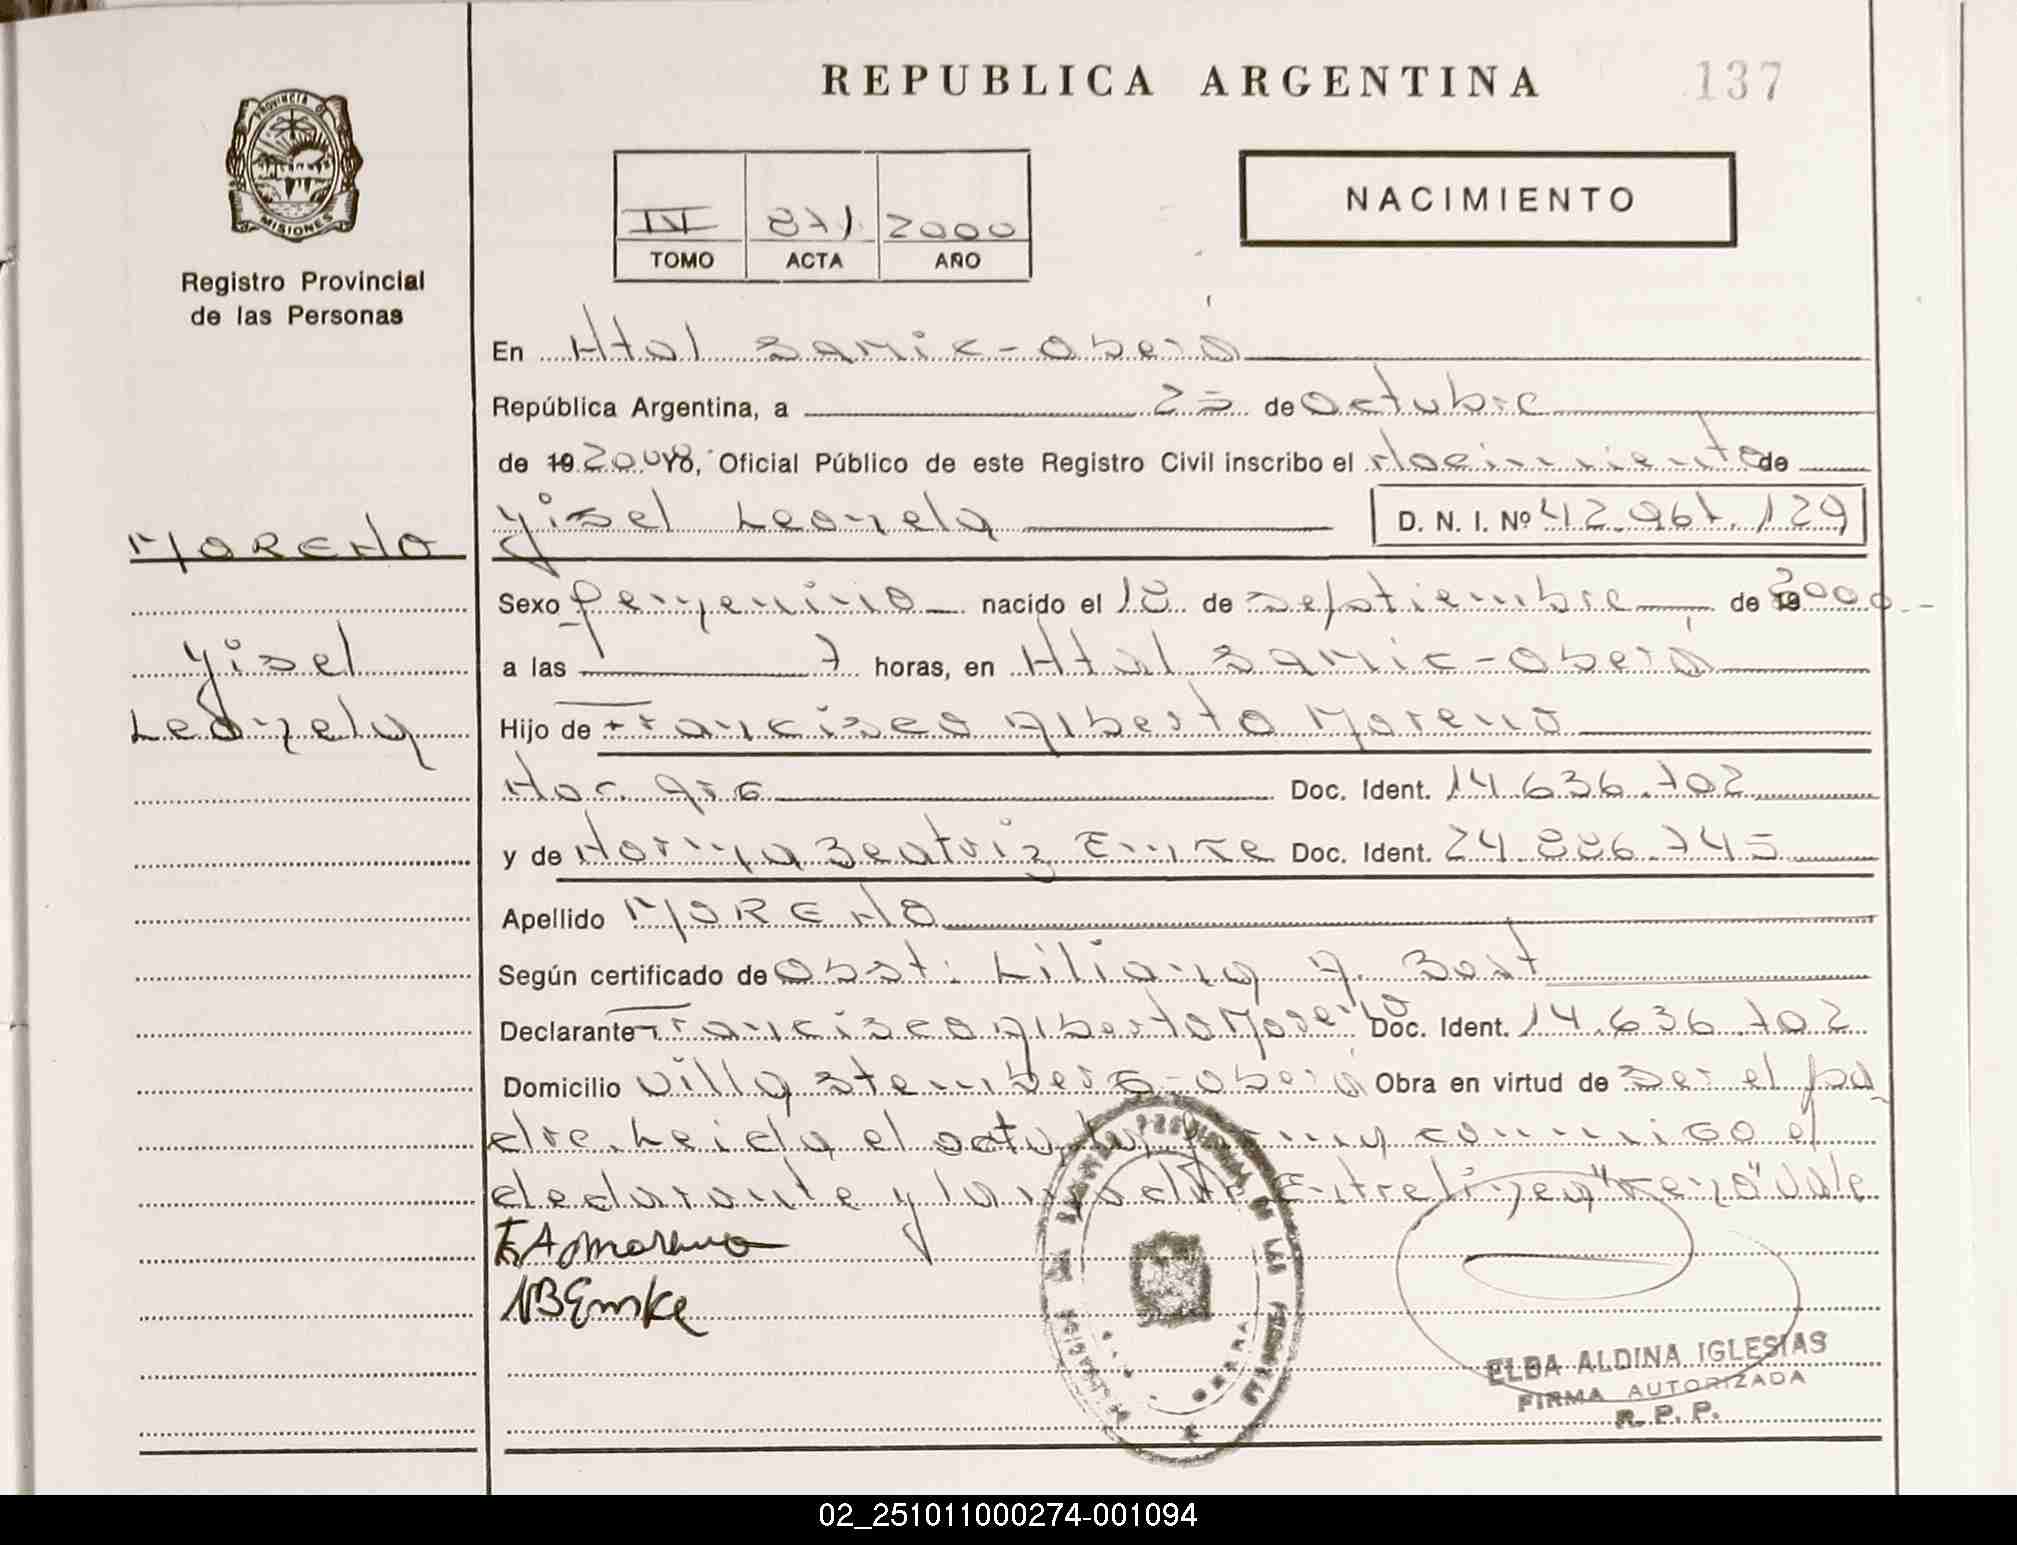 REPUBLICA ARGENTINA
137
PROVINCIA DE
MISIONES
Registro Provincial
de las Personas
NACIMIENTO
871 2000
TOMO ACTA AÑO
En Htal Samic - Oberá
República Argentina, a 25 de Octubre
de 19 2000 Yo, Oficial Público de este Registro Civil inscribo el Nacimiento de
Yisel Leonela
D. N. I. Nº 42.961.129
MORENO
Yisel
Leonela
Sexo femenino nacido el 18 de Septiembre de 19 2000.-
a las 7 horas, en Htal Samic - Oberá
Hijo de Francisco Alberto Moreno
Nac. Arg Doc. Ident. 14.636.702
y de Norma Beatriz Emke Doc. Ident. 24.886.745
Apellido MORENO
Según certificado de Obst. Liliana A. Bost
Declarante Francisco Alberto Moreno Doc. Ident. 14.636.702
Domicilio Villa Stemberg - Oberá Obra en virtud de ser el pa
dre. Leida el acta la firma conmigo el
declarante y la madre Entrelinea "reno" Vale
F A Moreno
NBEmke
ELBA ALDINA IGLESIAS
FIRMA AUTORIZADA
R. P. P.
02_251011000274-001094